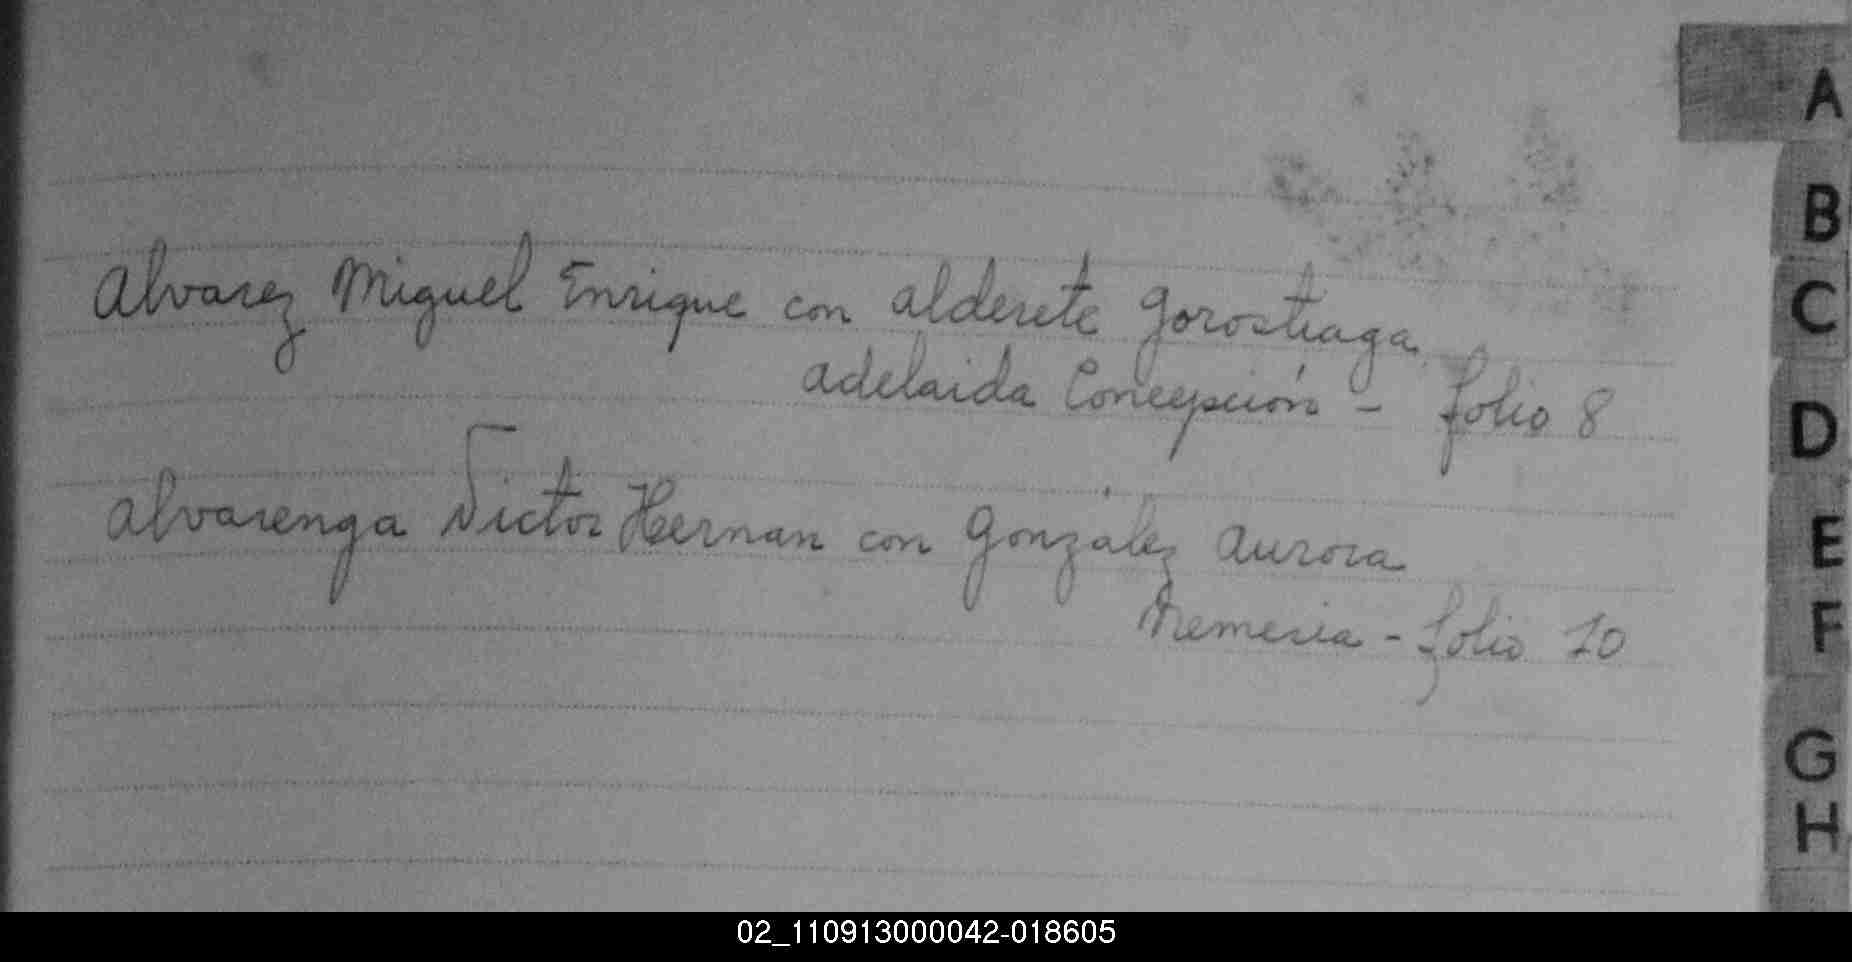 Alvarez Miguel Enrique con Alderete Gorostiaga
Adelaida Concepción - folio 8
Alvarenga Victor Hernan con González Aurora
Nemesia - folio 10
A
B
C
D
E
F
G
H
02_110913000042-018605